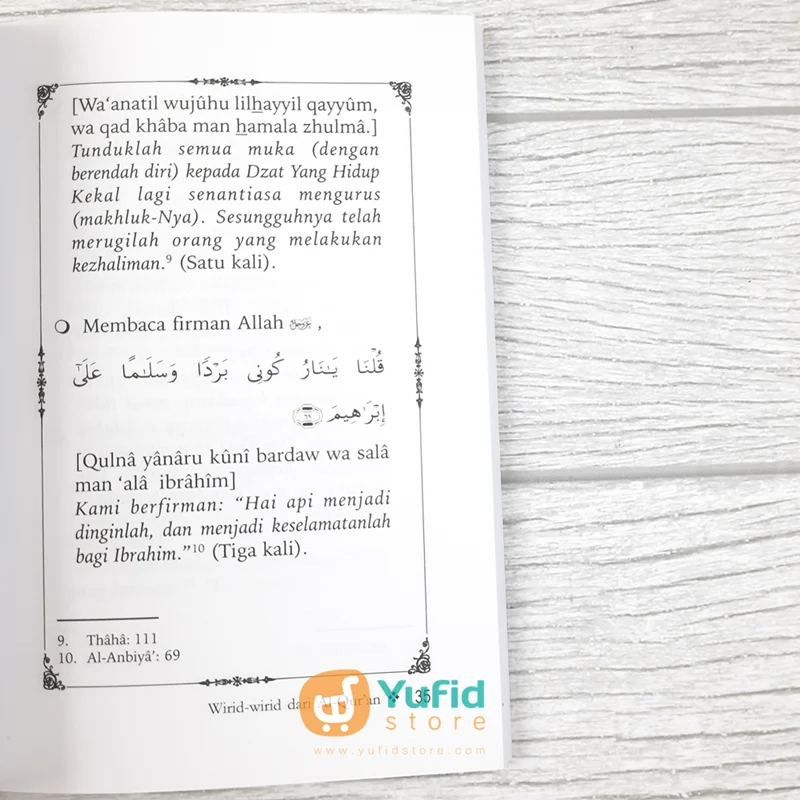 [Wa‘anatil wujûhu lilhayyil qayyûm,
wa qad khâba man hamala zhulmâ.]
Tunduklah semua muka (dengan
berendah diri) kepada Dzat Yang Hidup
Kekal lagi senantiasa mengurus
(makhluk-Nya). Sesungguhnya telah
merugilah orang yang melakukan
kezhaliman.⁹ (Satu kali).
❍ Membaca firman Allah ,
قُلْنَا يَـٰنَارُ كُونِى بَرْدًا وَسَلَـٰمًا عَلَىٰٓ
إِبْرَٰهِيمَ ٦٩
[Qulnâ yânâru kûnî bardaw wa salâ
man ‘alâ ibrâhîm]
Kami berfirman: “Hai api menjadi
dinginlah, dan menjadi keselamatanlah
bagi Ibrahim.”¹⁰ (Tiga kali).
9. Thâhâ: 111
10. Al-Anbiyâ’: 69
Wirid-wirid dari Al-Qur’an ❖ 35
Yufid
store
www.yufidstore.com